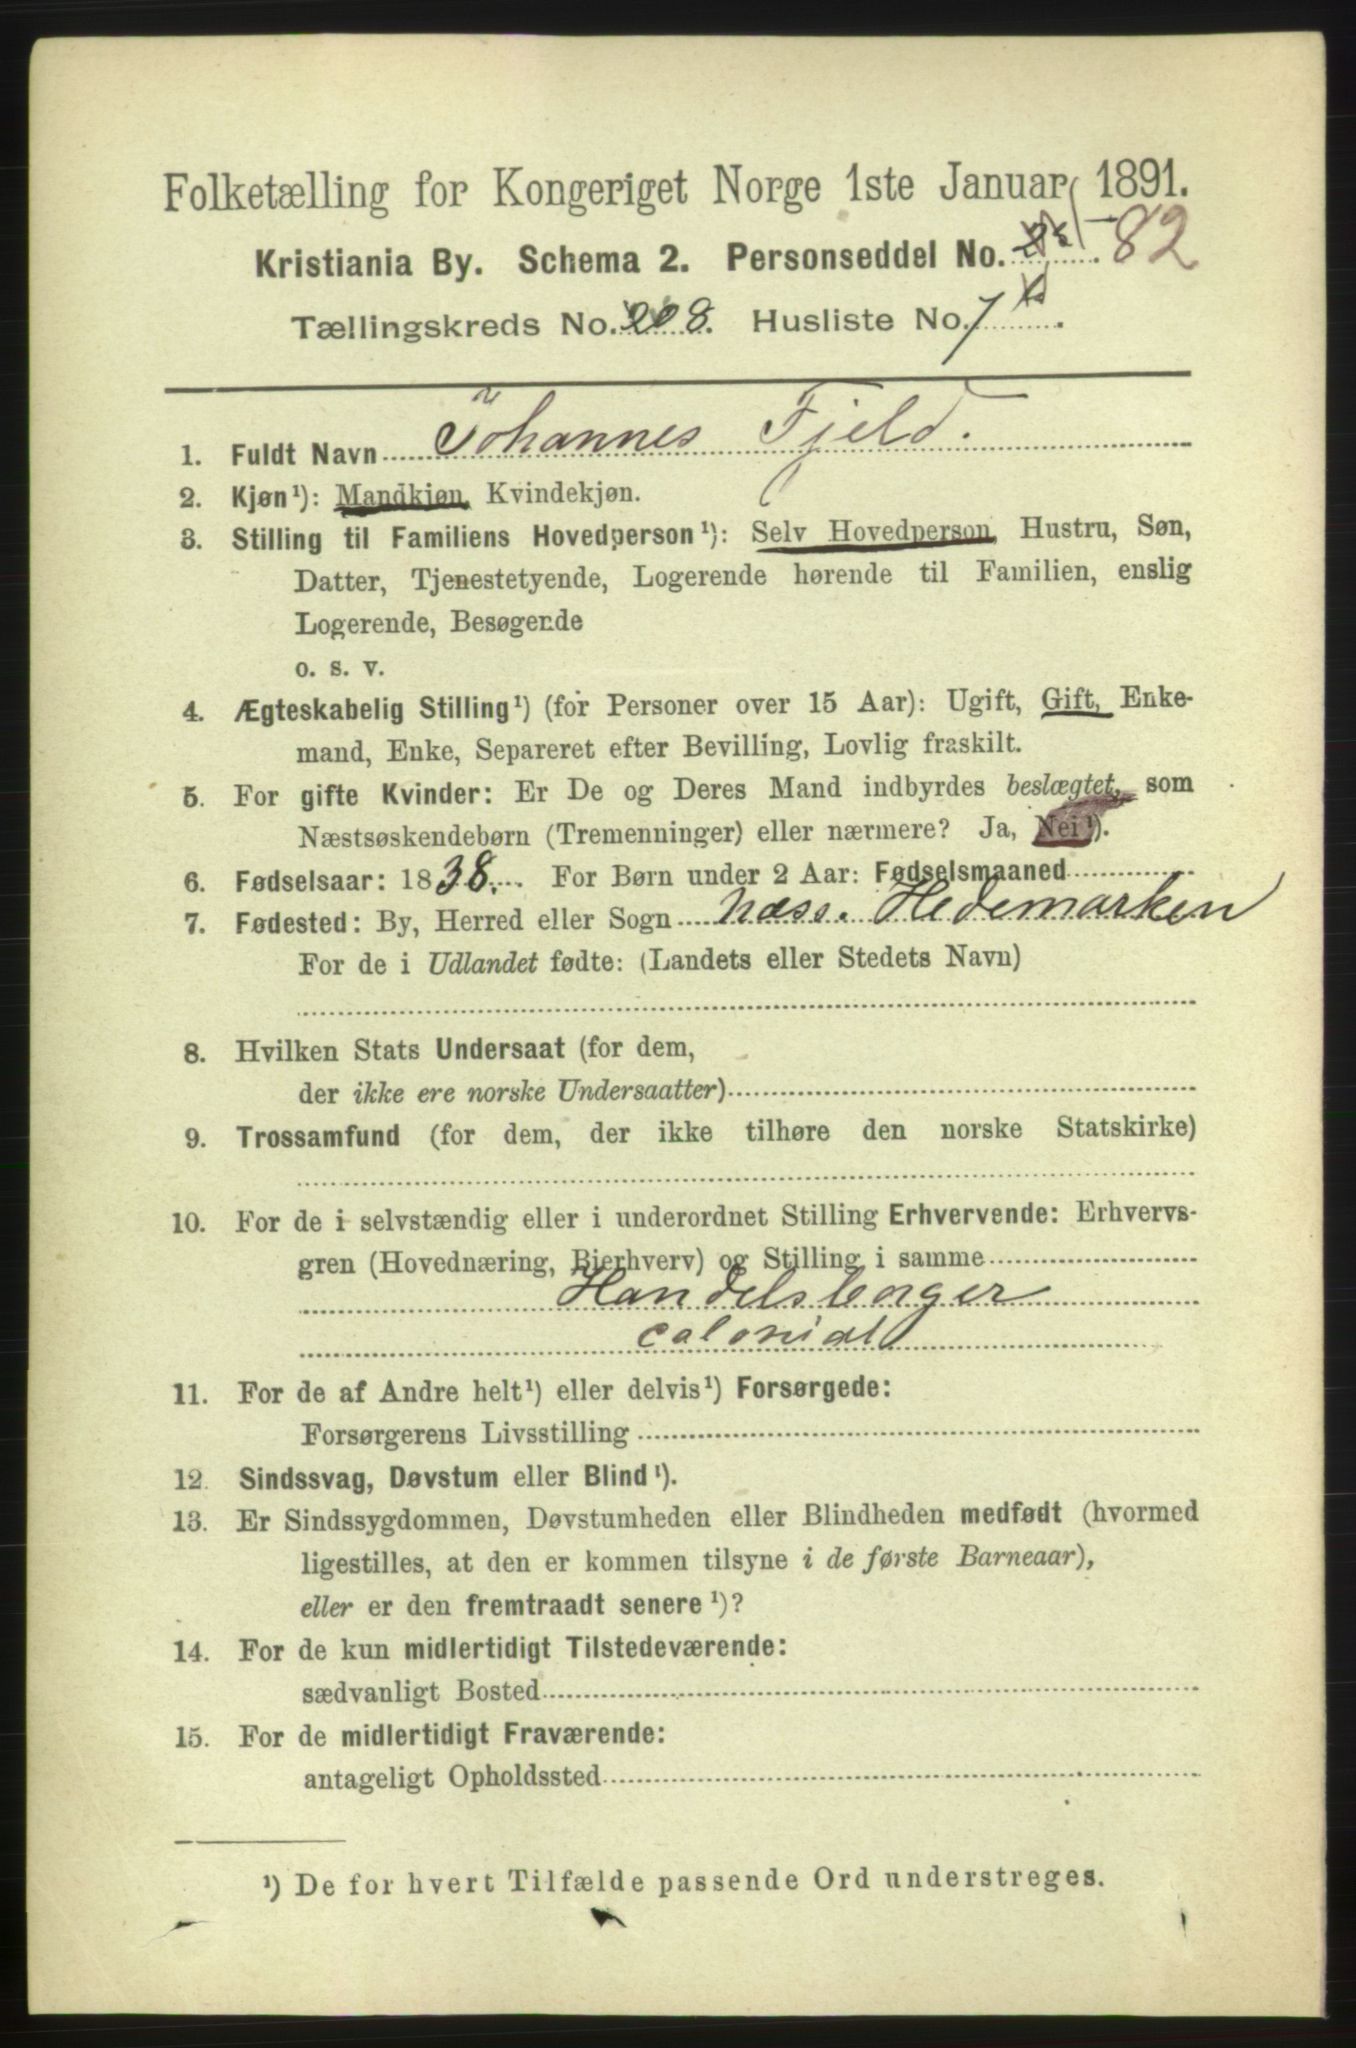 Folketælling for Kongeriget Norge 1ste Januar 1891.
Kristiania By. Schema 2. Personseddel No. 82
Tællingskreds No. 208. Husliste No. 7
1. Fuldt Navn Johannes Fjeld.
2. Kjøn¹): Mandkjøn, Kvindekjøn.
3. Stilling til Familiens Hovedperson¹): Selv Hovedperson, Hustru, Søn,
Datter, Tjenestetyende, Logerende hørende til Familien, enslig
Logerende, Besøgende
o. s. v.
4. Ægteskabelig Stilling¹) (for Personer over 15 Aar): Ugift, Gift, Enke-
mand, Enke, Separeret efter Bevilling, Lovlig fraskilt.
5. For gifte Kvinder: Er De og Deres Mand indbyrdes beslægtet, som
Næstsøskendebørn (Tremenninger) eller nærmere? Ja, Nei¹).
6. Fødselsaar: 1838. For Børn under 2 Aar: Fødselsmaaned
7. Fødested: By, Herred eller Sogn Næss. Hedemarken
For de i Udlandet fødte: (Landets eller Stedets Navn)
8. Hvilken Stats Undersaat (for dem,
der ikke ere norske Undersaatter)
9. Trossamfund (for dem, der ikke tilhøre den norske Statskirke)
10. For de i selvstændig eller i underordnet Stilling Erhvervende: Erhvervs-
gren (Hovednæring, Bierhverv) og Stilling i samme
Handelsborger
colonial
11. For de af Andre helt¹) eller delvis¹) Forsørgede:
Forsørgerens Livsstilling
12. Sindssvag, Døvstum eller Blind¹).
13. Er Sindssygdommen, Døvstumheden eller Blindheden medfødt (hvormed
ligestilles, at den er kommen tilsyne i de første Barneaar),
eller er den fremtraadt senere¹)?
14. For de kun midlertidigt Tilstedeværende:
sædvanligt Bosted
15. For de midlertidigt Fraværende:
antageligt Opholdssted
¹) De for hvert Tilfælde passende Ord understreges.